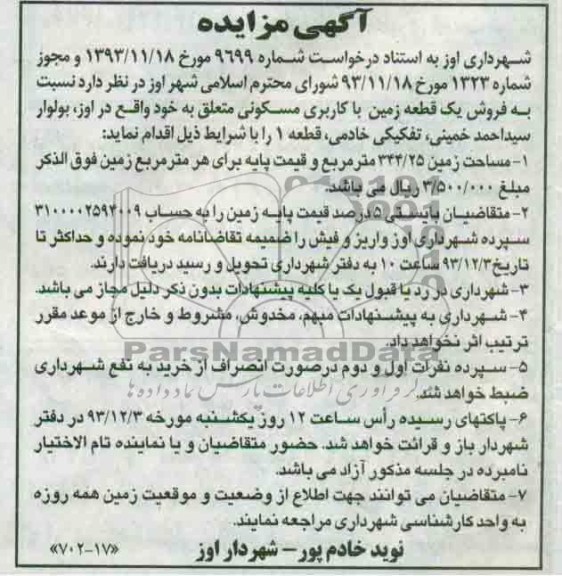 آگهی مزایده
شهرداری اوز به استناد درخواست شماره ۹۶۹۹ مورخ ۱۳۹۳/۱۱/۱۸ و مجوز
شماره ۱۳۲۳ مورخ ۹۳/۱۱/۱۸ شورای محترم اسلامی شهر اوز در نظر دارد نسبت
به فروش یک قطعه زمین با کاربری مسکونی متعلق به خود واقع در اوز، بولوار
سیداحمد خمینی، تفکیکی خادمی، قطعه ۱ را با شرایط ذیل اقدام نماید:
۱- مساحت زمین ۳۴۴/۲۵ مترمربع و قیمت پایه برای هر مترمربع زمین فوق الذکر
مبلغ ۳/۵۰۰/۰۰۰ ریال می باشد.
۲- متقاضیان بایستی ۵ درصد قیمت پایه زمین را به حساب ۳۱۰۰۰۰۲۵۹۴۰۰۹
سپرده شهرداری اوز واریز و فیش را ضمیمه تقاضانامه خود نموده و حداکثر تا
تاریخ ۹۳/۱۲/۳ ساعت ۱۰ به دفتر شهرداری تحویل و رسید دریافت دارند.
۳- شهرداری در رد یا قبول یک یا کلیه پیشنهادات بدون ذکر دلیل مجاز می باشد.
۴- شهرداری به پیشنهادات مبهم، مخدوش، مشروط و خارج از موعد مقرر
ترتیب اثر نخواهد داد.
ParsNamadData
۵- سپرده نفرات اول و دوم درصورت انصراف از خرید به نفع شهرداری
ضبط خواهد شد.
۶- پاکتهای رسیده رأس ساعت ۱۲ روز یکشنبه مورخه ۹۳/۱۲/۳ در دفتر
شهردار باز و قرائت خواهد شد. حضور متقاضیان و یا نماینده تام الاختیار
نامبرده در جلسه مذکور آزاد می باشد.
۷- متقاضیان می توانند جهت اطلاع از وضعیت و موقعیت زمین همه روزه
به واحد کارشناسی شهرداری مراجعه نمایند.
نوید خادم پور – شهردار اوز «۷۰۲-۱۷»